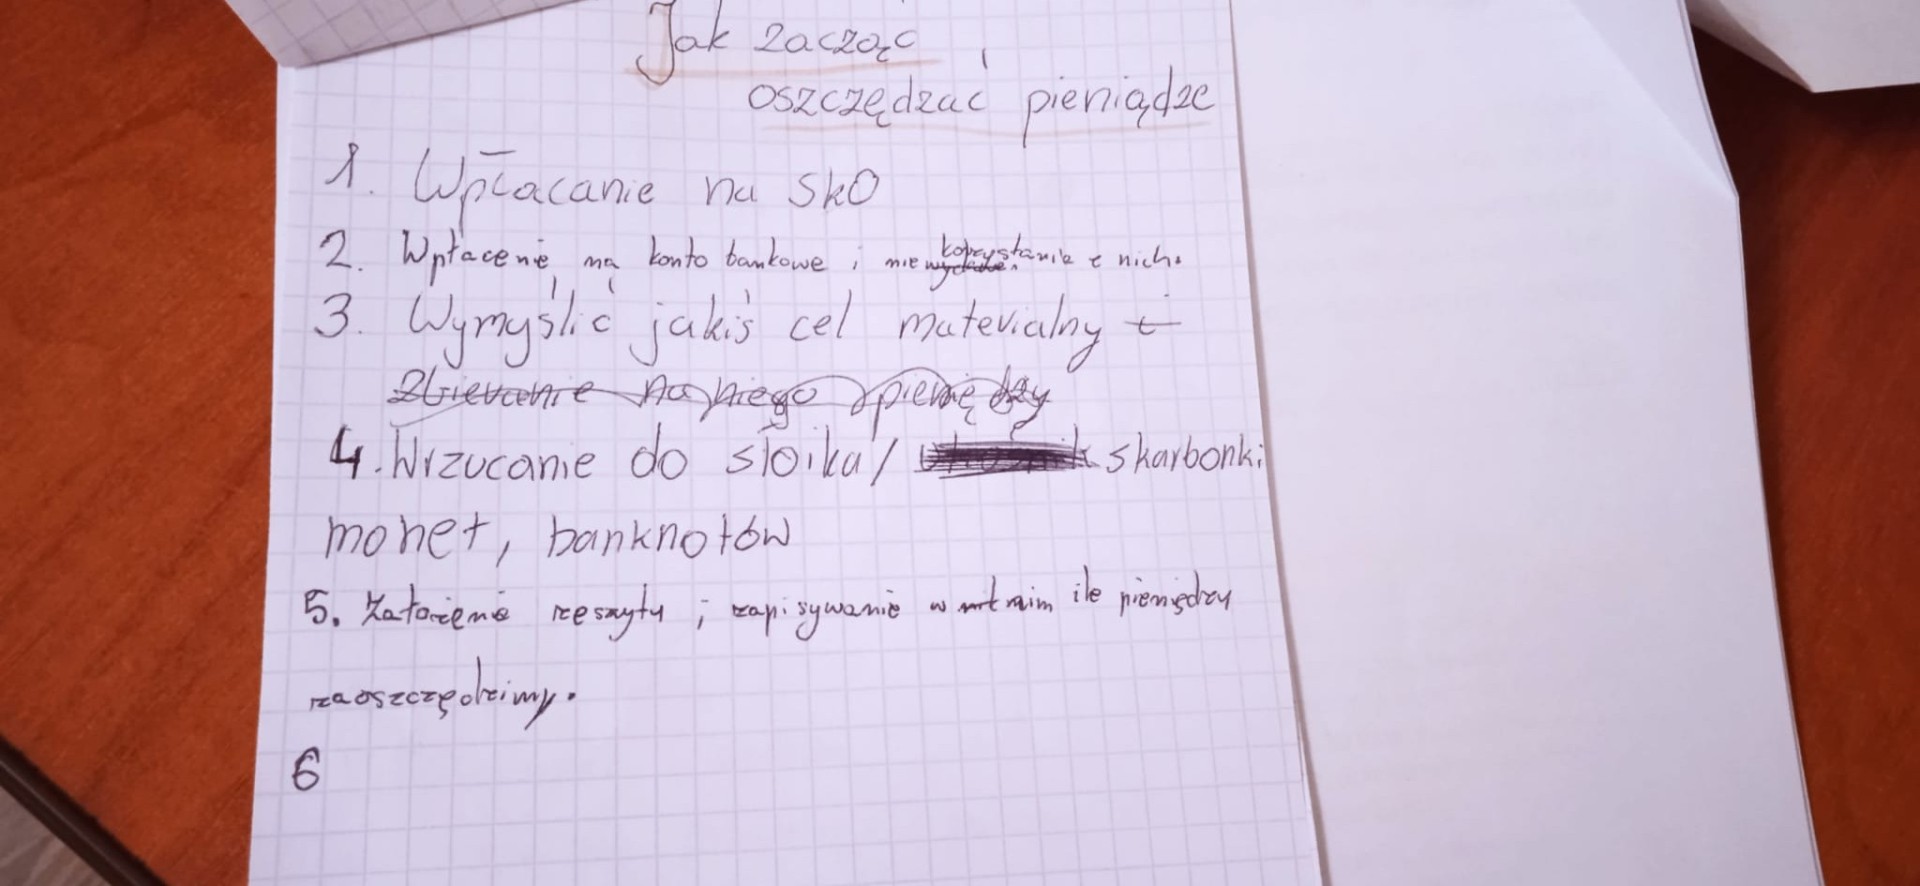 Jak zacząć
oszczędzać pieniądze
1. Wpłacanie na SKO
2. Wpłacenie na konto bankowe i nie korzystanie z nich.
3. Wymyślić jakiś cel materialny
Zbieranie na niego pieniędzy
4. Wrzucanie do słoika / skarbonki
monet, banknotów
5. Założenie zeszytu i zapisywanie w nim ile pieniędzy
zaoszczędzimy.
6